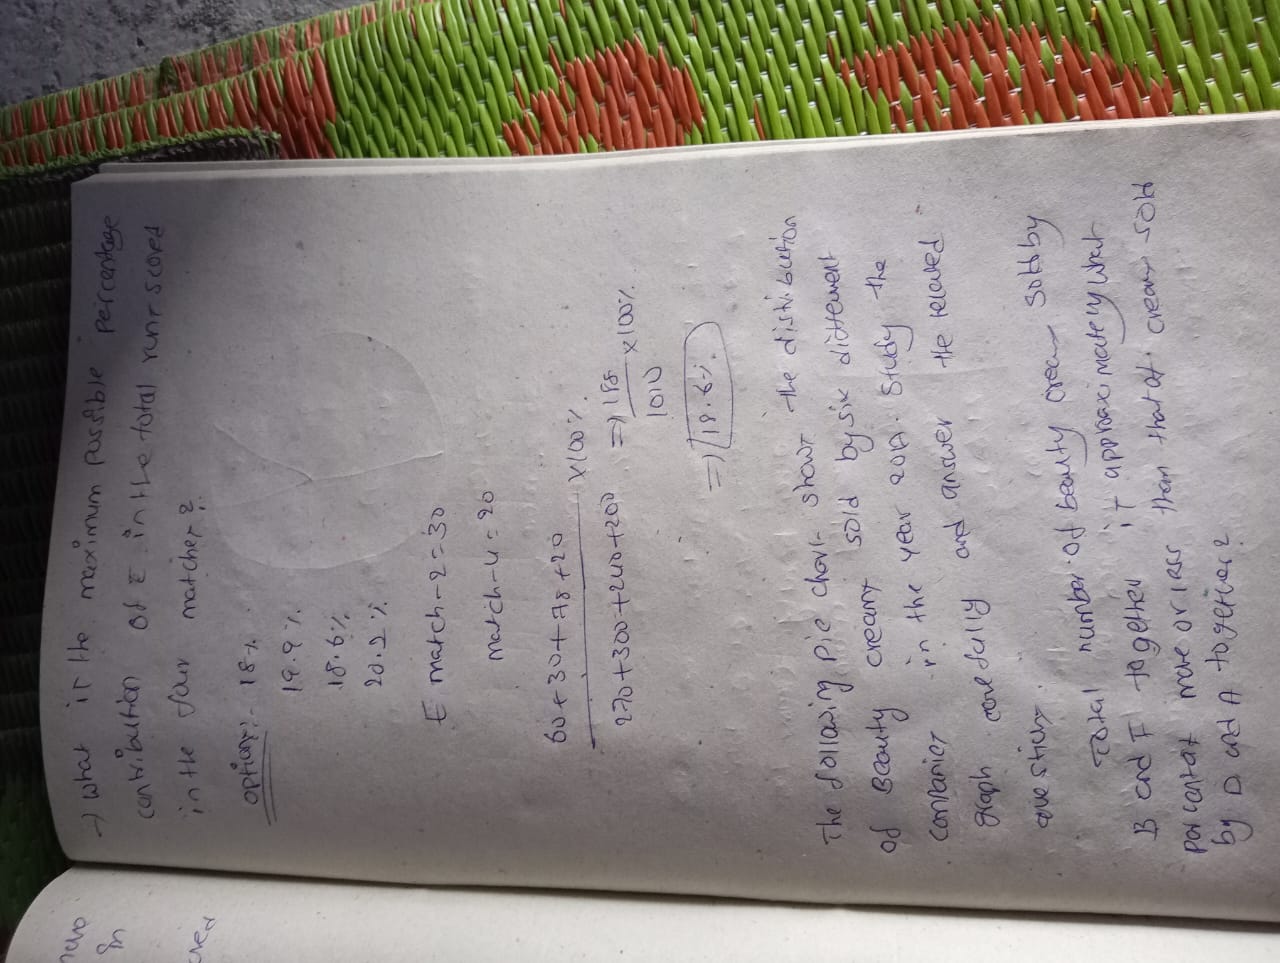 → what is the maximum possible percentage
contribution of E in the total runs scored
in the four matches?
options:- 18%
19.9%
18.6%
20.2%
E match-2=30
match-4=20
60+30+78+20
270+300+240+200 ×100%.
=> 188
1010 ×100%
=> 18.6%.
The following pie chart shows the distribution
of Beauty creams sold by six different
companies in the year 2017. Study the
graph carefully and answer the related
question.
Total number of beauty cream sold by
B and F together is approximately what
percentage more or less than that of cream sold
by D and A together?
in